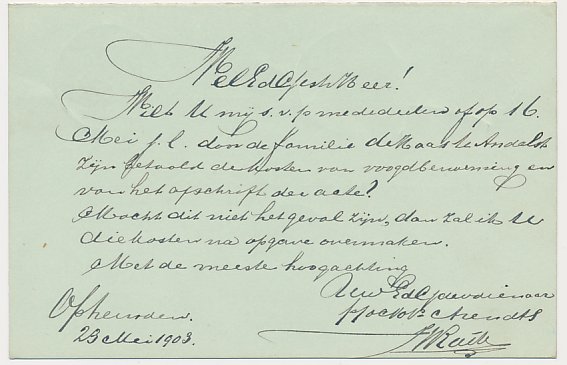 WelEdGestr Heer!
Wilt U mij s.v.p. mededeelen of op 16
Mei j.l. door de familie de Haas te Andelst
zijn betaald de kosten van voogdbenoeming en
van het afschrift der acte?
Mocht dit niet het geval zijn, dan zal ik U
die kosten na opgave overmaken.
Met de meeste hoogachting
Uw EdGdwdienaar
Opheusden. Arendts
23 Mei 1903.